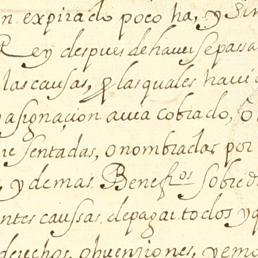 n expirado poco ha, y Sin
Rey despues de haverse passa
las causas, p las quales havi
asignaçion avia cobrado, o
re sentadas, o nombradas por
, y demas Benef.os sobre d
ntes caussas. de pagar todos y q
derechos, obvenziones, y emo